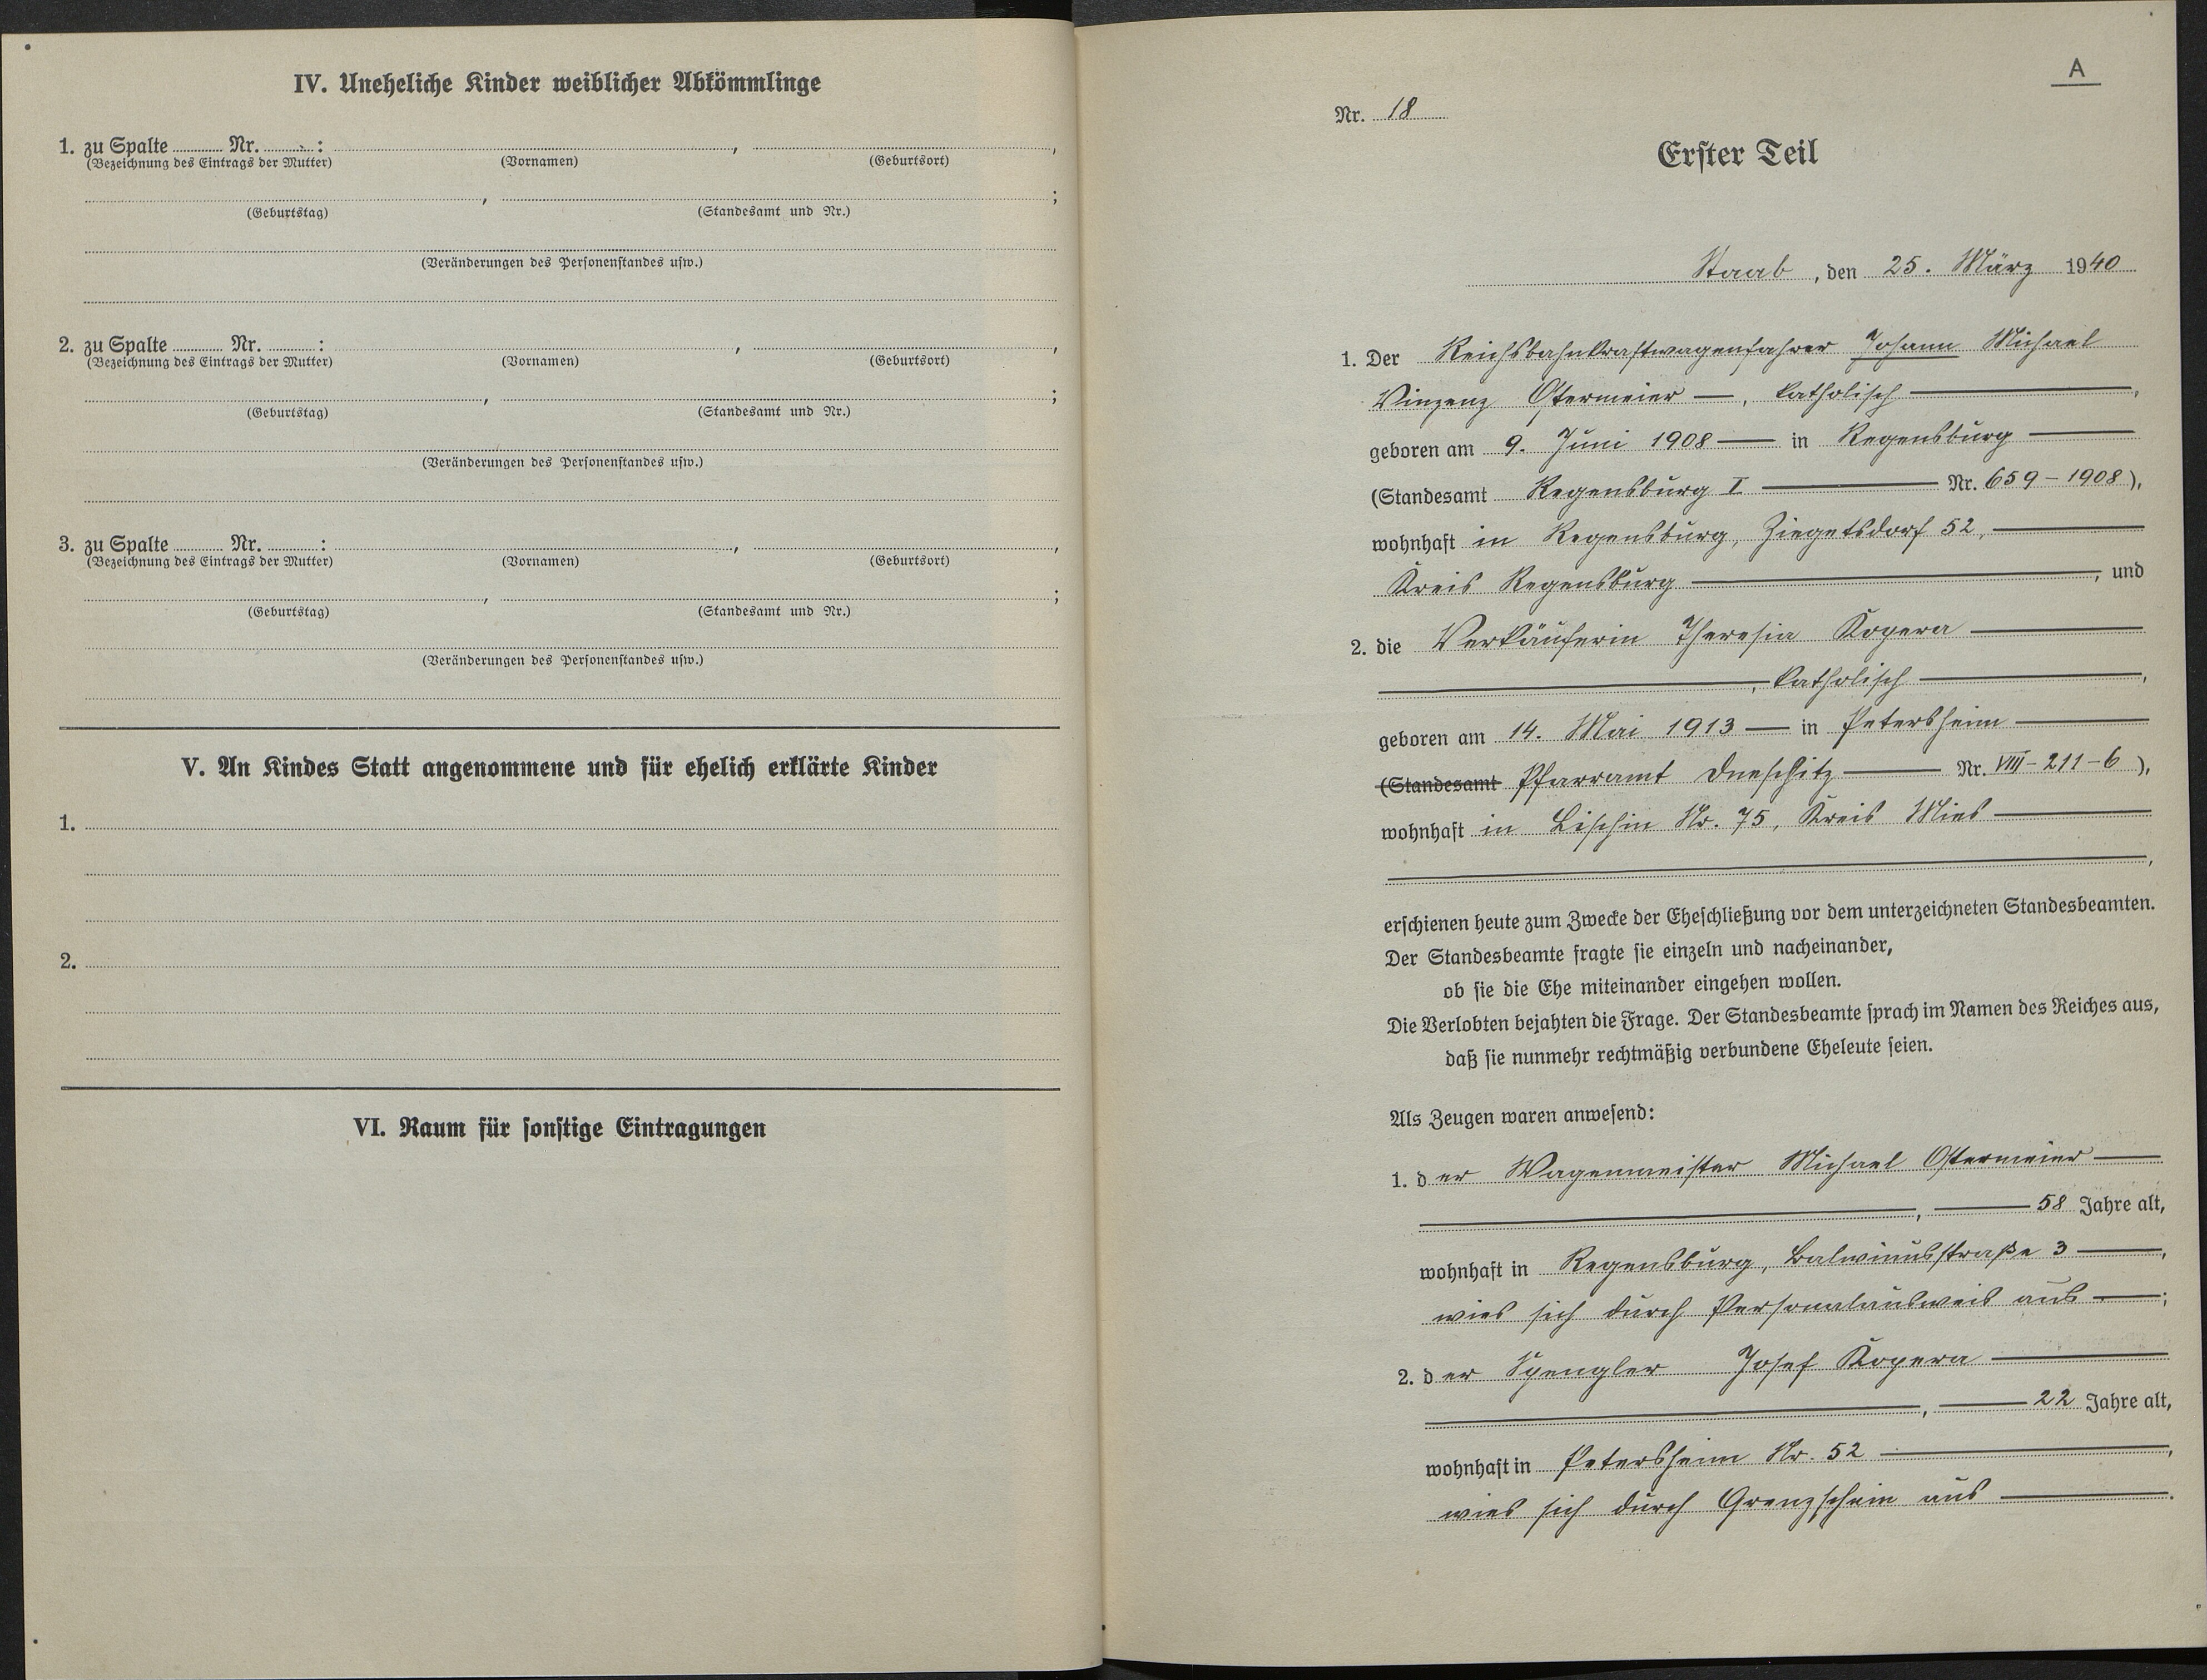 IV. Uneheliche Kinder weiblicher Abkömmlinge
1. zu Spalte ........ Nr. ........ : ........ , ........ ,
(Bezeichnung des Eintrags der Mutter) (Vornamen) (Geburtsort)
, ;
(Geburtstag) (Standesamt und Nr.)
(Veränderungen des Personenstandes usw.)
2. zu Spalte ........ Nr. ........ : ........ , ........ ,
(Bezeichnung des Eintrags der Mutter) (Vornamen) (Geburtsort)
, ;
(Geburtstag) (Standesamt und Nr.)
(Veränderungen des Personenstandes usw.)
3. zu Spalte ........ Nr. ........ : ........ , ........ ,
(Bezeichnung des Eintrags der Mutter) (Vornamen) (Geburtsort)
, ;
(Geburtstag) (Standesamt und Nr.)
(Veränderungen des Personenstandes usw.)
V. An Kindes Statt angenommene und für ehelich erklärte Kinder
1.
2.
VI. Raum für sonstige Eintragungen
A
Nr. 18
Erster Teil
Staab, den 25. März 1940
1. Der Reichsbahnkraftwagenfahrer Johann Michael
Vinzenz Ostermeier —, katholisch —,
geboren am 9. Juni 1908 — in Regensburg —
(Standesamt Regensburg I — Nr. 659-1908),
wohnhaft in Regensburg, Ziegetsdorf 52, —
Kreis Regensburg —, und
2. die Verkäuferin Theresia Kopera —
—, katholisch —,
geboren am 14. Mai 1913 — in Petersheim —
(Standesamt Pfarramt Dneschitz — Nr. VIII-211-6),
wohnhaft in Lischin Nr. 75, Kreis Mies —
—,
erschienen heute zum Zwecke der Eheschließung vor dem unterzeichneten Standesbeamten.
Der Standesbeamte fragte sie einzeln und nacheinander,
ob sie die Ehe miteinander eingehen wollen.
Die Verlobten bejahten die Frage. Der Standesbeamte sprach im Namen des Reiches aus,
daß sie nunmehr rechtmäßig verbundene Eheleute seien.
Als Zeugen waren anwesend:
1. der Wagenmeister Michael Ostermeier —
—, — 58 Jahre alt,
wohnhaft in Regensburg, Balwinusstraße 3 —,
wies sich durch Personalausweis aus —;
2. der Spengler Josef Kopera —
—, — 22 Jahre alt,
wohnhaft in Petersheim Nr. 52 —,
wies sich durch Grenzschein aus —.